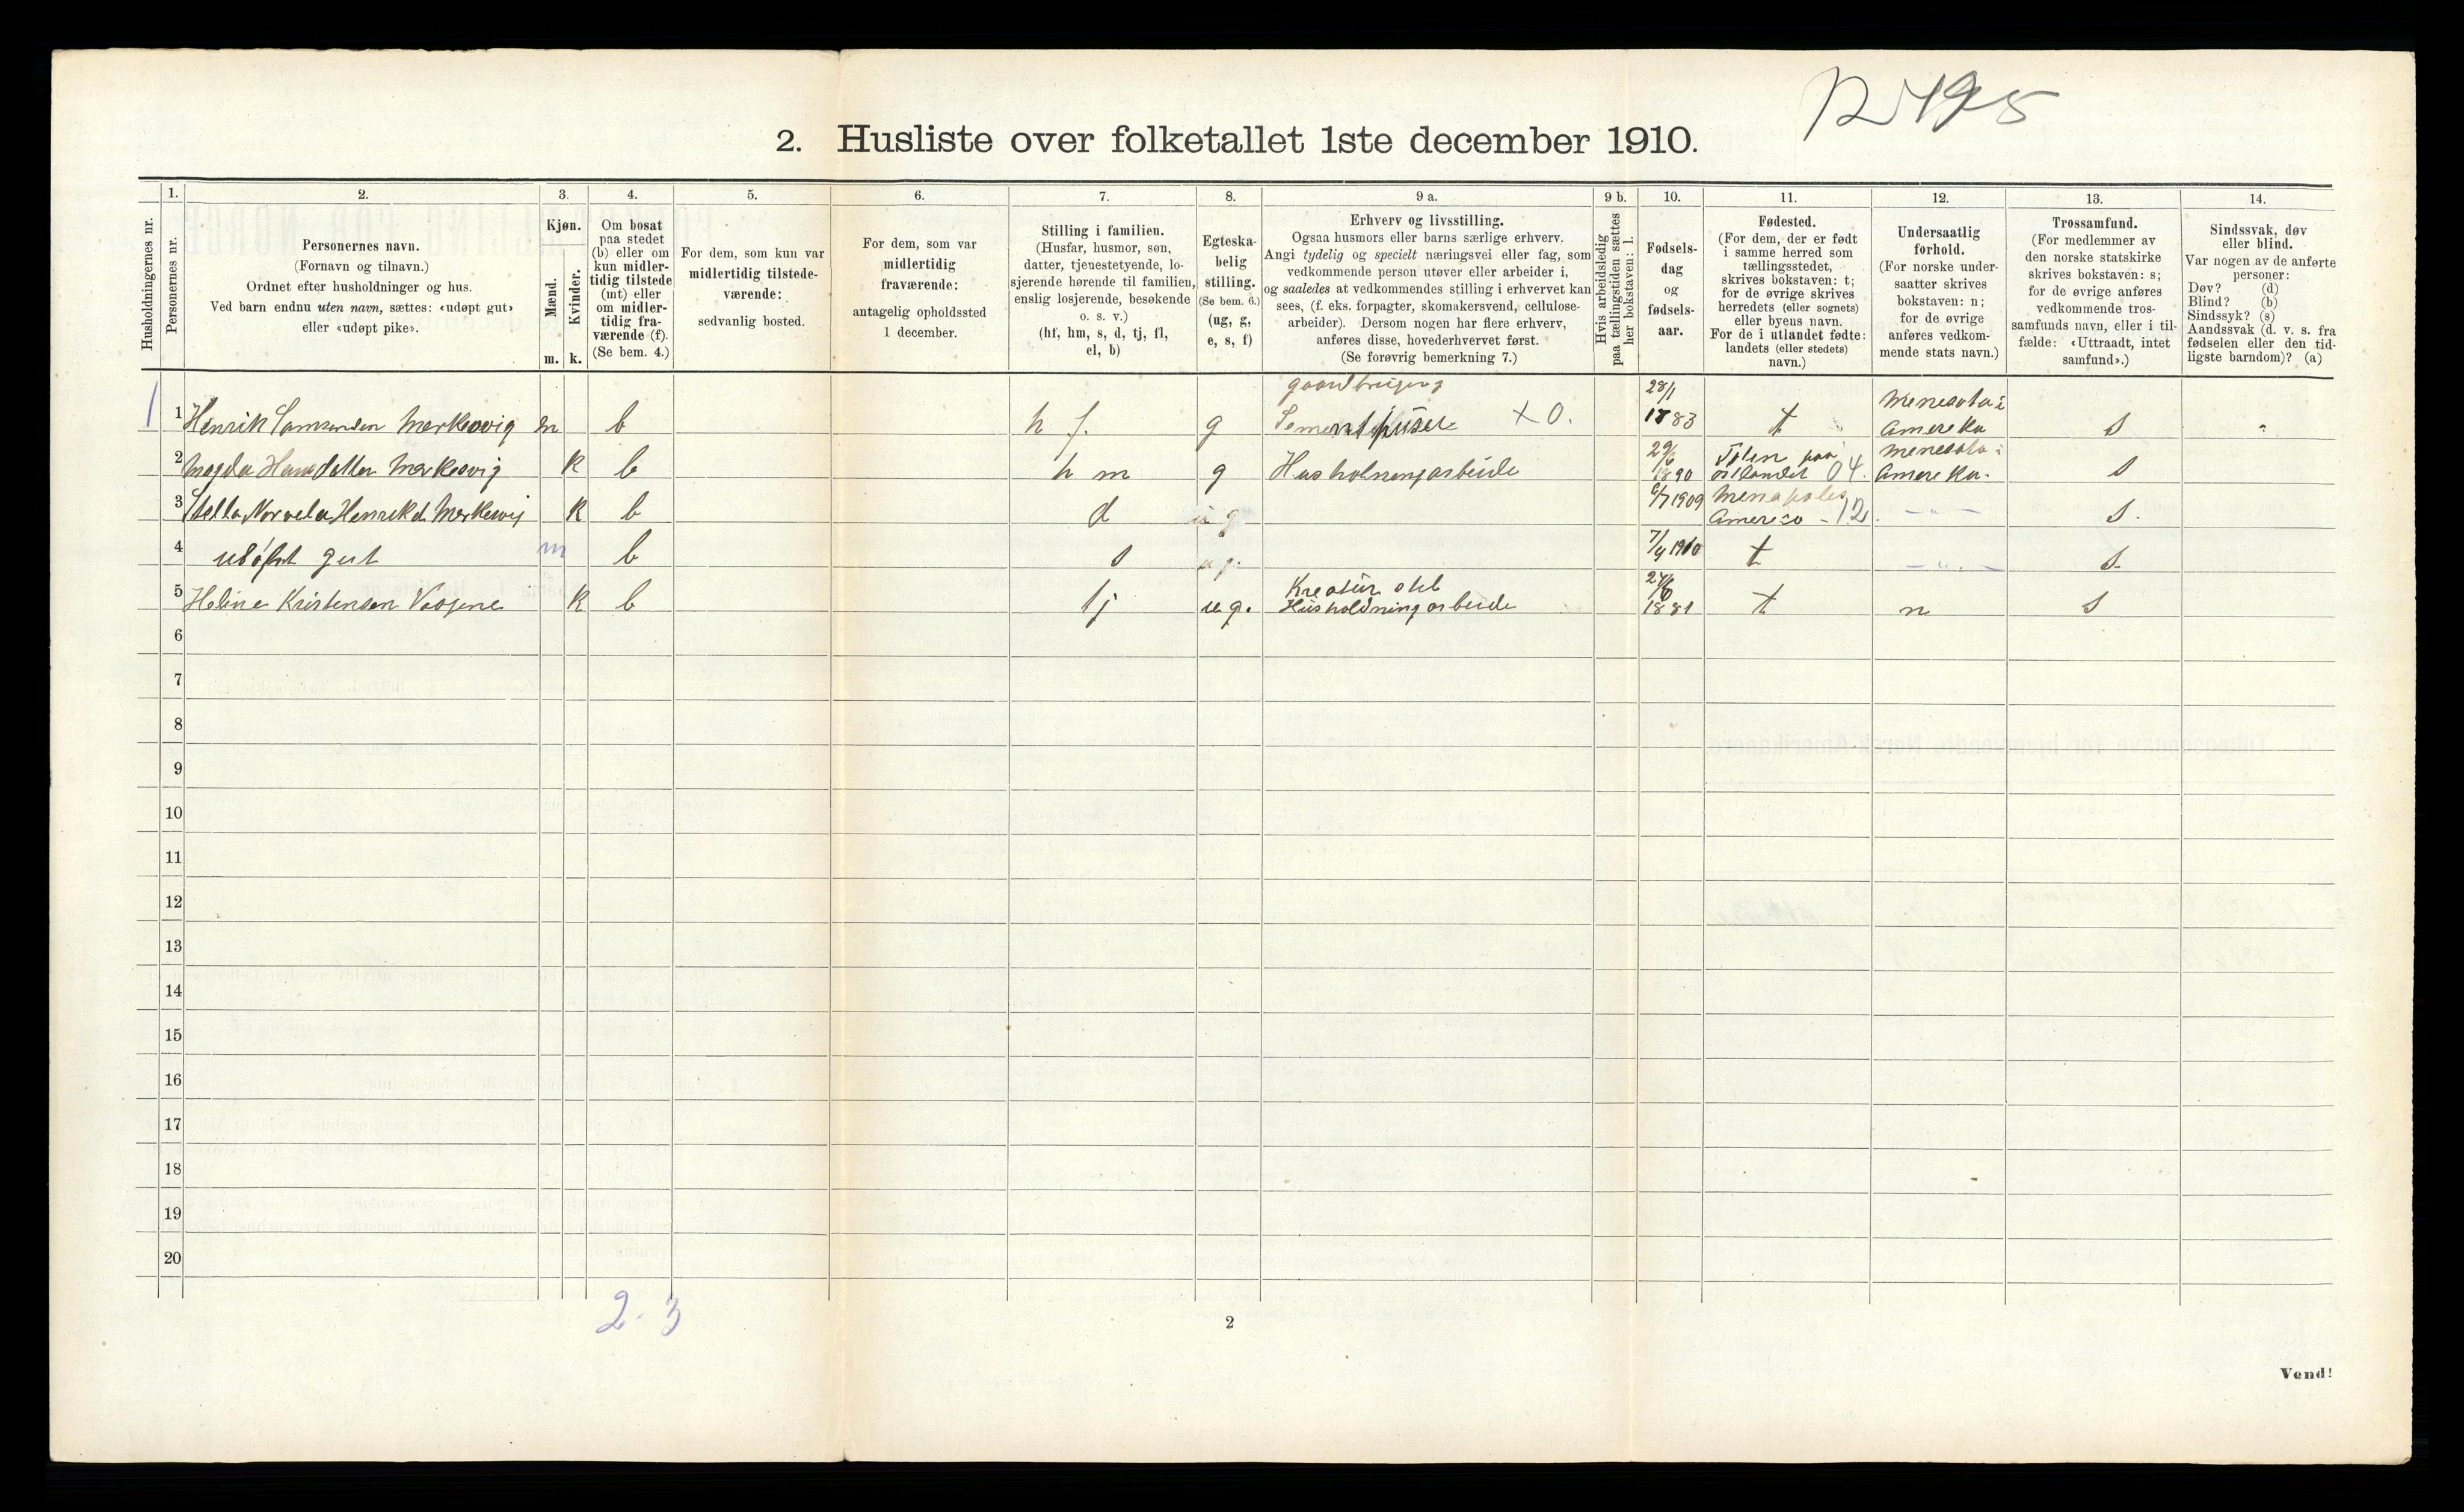 2. Husliste over folketallet 1ste december 1910.
Husholdningernes nr.
1.
Personernes nr.
2.
Personernes navn.
(Fornavn og tilnavn.)
Ordnet efter husholdninger og hus.
Ved barn endnu uten navn, sættes: «udøpt gut»
eller «udøpt pike».
3.
Kjøn.
Mænd.
Kvinder.
m. k.
4.
Om bosat
paa stedet
(b) eller om
kun midler-
tidig tilstede
(mt) eller
om midler-
tidig fra-
værende (f).
(Se bem. 4.)
5.
For dem, som kun var
midlertidig tilstede-
værende:
sedvanlig bosted.
6.
For dem, som var
midlertidig
fraværende:
antagelig opholdssted
1 december.
7.
Stilling i familien.
(Husfar, husmor, søn,
datter, tjenestetyende, lo-
sjerende hørende til familien,
enslig losjerende, besøkende
o. s. v.)
(hf, hm, s, d, tj, fl,
el, b)
8.
Egteska-
belig
stilling.
(Se bem. 6.)
(ug, g,
e, s, f)
9 a.
Erhverv og livsstilling.
Ogsaa husmors eller barns særlige erhverv.
Angi tydelig og specielt næringsvei eller fag, som
vedkommende person utøver eller arbeider i,
og saaledes at vedkommendes stilling i erhvervet kan
sees, (f. eks. forpagter, skomakersvend, cellulose-
arbeider). Dersom nogen har flere erhverv,
anføres disse, hovederhvervet først.
(Se forøvrig bemerkning 7.)
9 b.
Hvis arbeidsledig
paa tællingstiden sættes
her bokstaven: l.
10.
Fødsels-
dag
og
fødsels-
aar.
11.
Fødested.
(For dem, der er født
i samme herred som
tællingsstedet,
skrives bokstaven: t;
for de øvrige skrives
herredets (eller sognets)
eller byens navn.
For de i utlandet fødte:
landets (eller stedets)
navn.)
12.
Undersaatlig
forhold.
(For norske under-
saatter skrives
bokstaven: n;
for de øvrige
anføres vedkom-
mende stats navn.)
13.
Trossamfund.
(For medlemmer av
den norske statskirke
skrives bokstaven: s;
for de øvrige anføres
vedkommende tros-
samfunds navn, eller i til-
fælde: «Uttraadt, intet
samfund».)
14.
Sindssvak, døv
eller blind.
Var nogen av de anførte
personer:
Døv? (d)
Blind? (b)
Sindssyk? (s)
Aandssvak (d. v. s. fra
fødselen eller den tid-
ligste barndom)? (a)
1 1 Henrik Samuelsen Merkesvig m b h f. g X 0. 28/1 1883 t Menesota i Amereka s
2 Magda Hansdatter Merkesvig k b h m g Husholnengarbeide 1890 paa Østlandet 04. Menesota i Amereka. s
3 Stella Norvela Henrikd Merkesvig k b d ug 1909 Menapoles Amereco 12 - " - s.
4 udøpt gut m b s ug. 7/4 1910 t - " - s.
5 Heline Kristensen k b tj ug. Kreatur stel Husholdningarbeide 24/6 1881 t n s
6
7
8
9
10
11
12
13
14
15
16
17
18
19
20
2. 3
2
Vend!